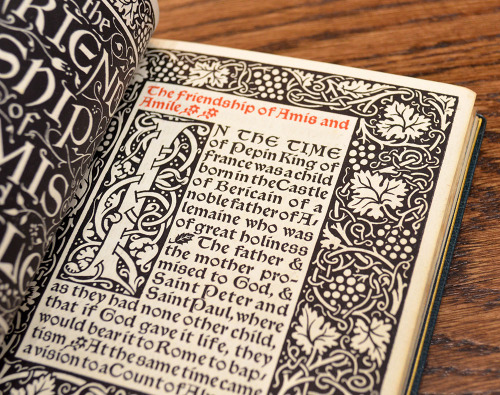 the
FRIEND
SHIP
of
AMIS
The friendship of Amis and
Amile
IN THE TIME
of Pepin King of
France was a child
born in the Castle
of Bericain of a
noble father of A,
lemaine who was
of great holiness
The father &
the mother pro,
mised to God, &
Saint Peter and
Saint Paul, where
as they had none other child,
that if God gave it life, they
would bear it to Rome to bap/
tism At the same time came
a vision to a Count of